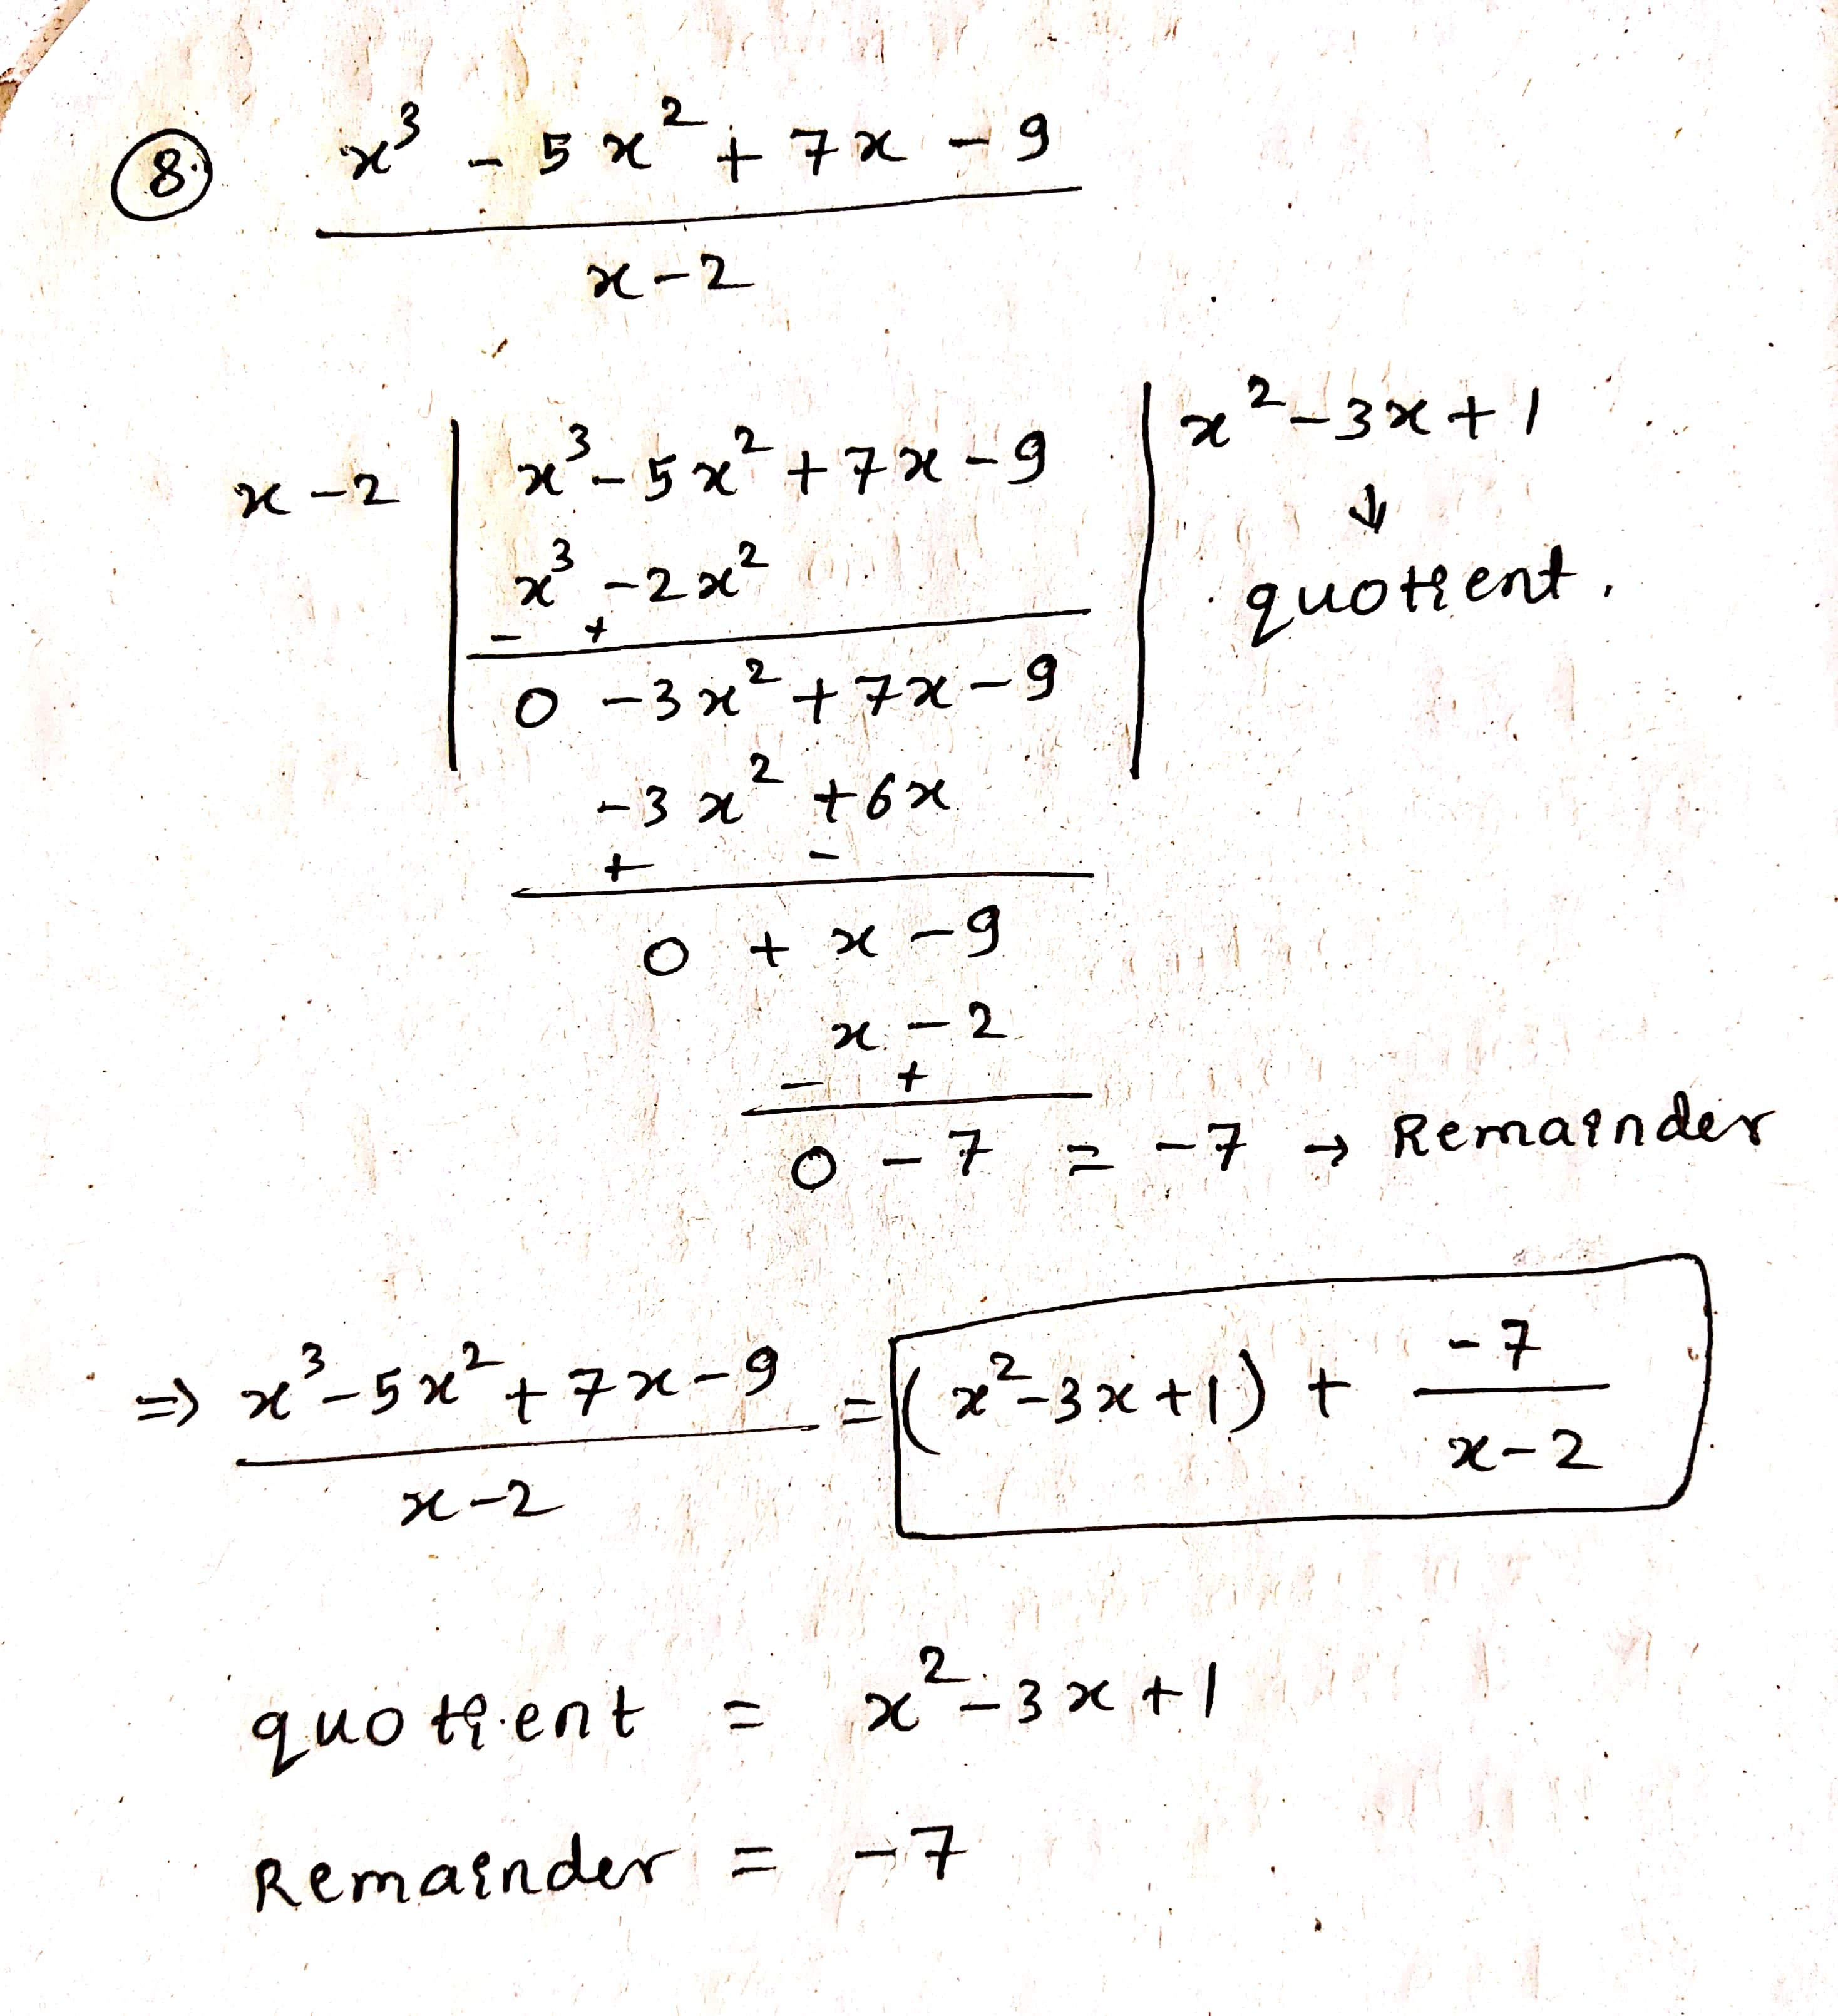 8. x³ - 5x² + 7x - 9
x - 2
x - 2 | x³ - 5x² + 7x - 9 | x² - 3x + 1
↓
x³ - 2x²
quotient.
- +
0 - 3x² + 7x - 9
- 3x² + 6x
+ -
0 + x - 9
x - 2
- +
0 - 7 = -7 → Remainder
⇒ x³ - 5x² + 7x - 9 / x - 2 = (x² - 3x + 1) + -7 / x - 2
quotient = x² - 3x + 1
Remainder = -7